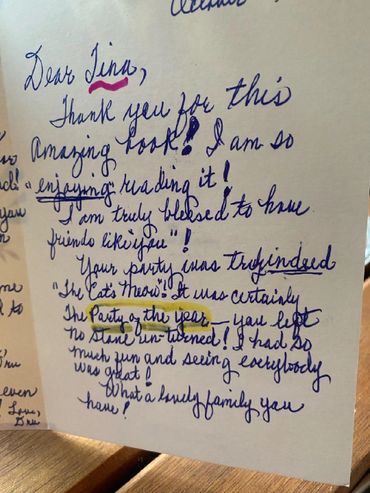 Dear Tina,
Thank you for this
Amazing book! I am so
"enjoying reading it!
I am truly blessed to have
friends like you"!
Your party was truly indeed
"The Cat's Meow"! It was certainly
The Party of the year — you left
no stone un-turned! I had so
much fun and seeing everybody
was great!
What a lovely family you
have!
you
me
to
even
! Love,